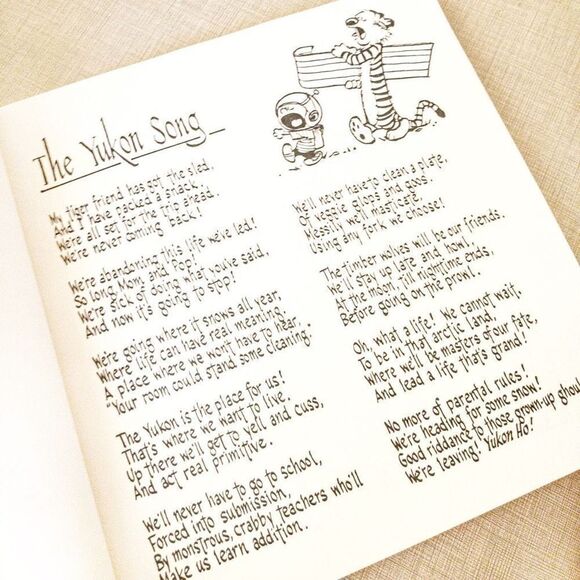 The Yukon Song
My tiger friend has got the sled,
And I have packed a snack.
We're all set for the trip ahead.
We're never coming back!
We're abandoning this life we've led!
So long, Mom and Pop!
We're sick of doing what you've said,
And now it's going to stop!
We're going where it snows all year,
Where life can have real meaning.
A place where we won't have to hear,
"Your room could stand some cleaning."
The Yukon is the place for us!
That's where we want to live.
Up there we'll get to yell and cuss,
And act real primitive.
We'll never have to go to school,
Forced into submission,
By monstrous, crabby teachers who'll
Make us learn addition.
We'll never have to clean a plate,
Of veggie glops and goos.
Messily we'll masticate,
Using any fork we choose!
The timber wolves will be our friends.
We'll stay up late and howl,
At the moon, till nighttime ends,
Before going on the prowl.
Oh, what a life! We cannot wait,
To be in that arctic land,
Where we'll be masters of our fate,
And lead a life that's grand!
No more of parental rules!
We're heading for some snow!
Good riddance to those grown-up ghoul
We're leaving! Yukon Ho!